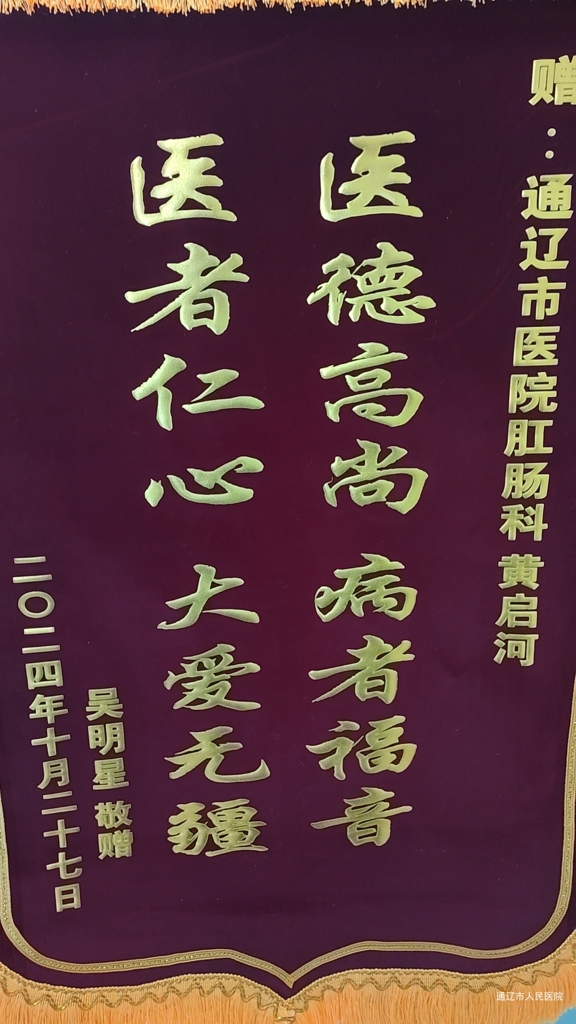 赠：通辽市医院肛肠科 黄启河
医德高尚 病者福音
医者仁心 大爱无疆
吴明星 敬赠
二〇二四年十月二十七日
通辽市人民医院